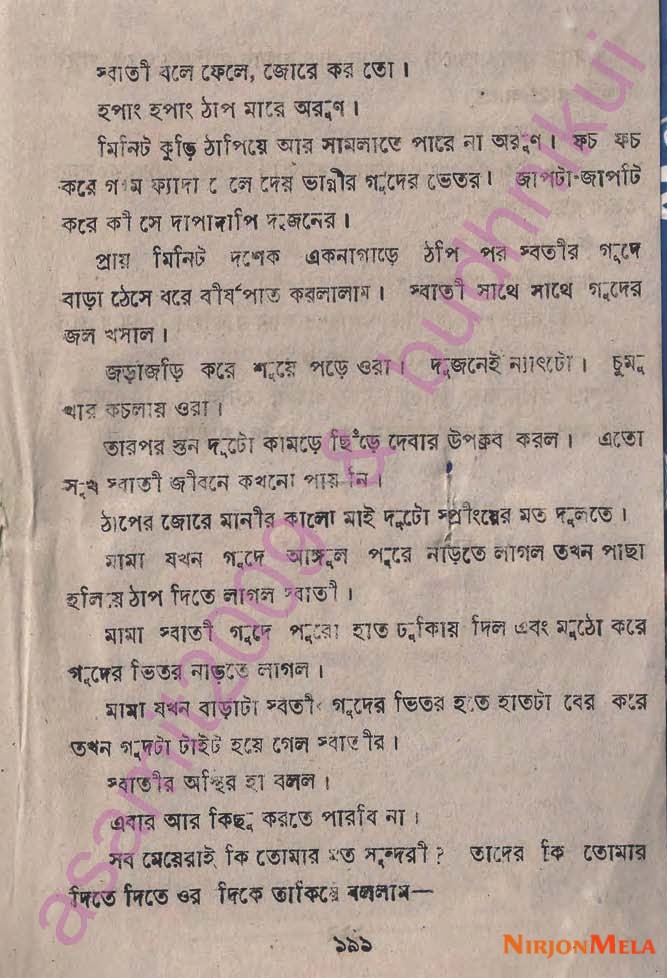 স্বাতী বলে ফেলে, জোরে কর তো।
হপাং হপাং ঠাপ মারে অরুণ।
মিনিট কুড়ি ঠাপিয়ে আর সামলাতে পারে না অরুণ। ফচ ফচ
করে গরম ফ্যাদা ঢেলে দেয় ভাগ্নীর গুদের ভেতর। জাপটা-জাপটি
করে কী সে দাপাদাপি দুজনের।
প্রায় মিনিট দশেক একনাগাড়ে ঠাপ পর স্বতীর গুদে
বাড়া ঠেসে ধরে বীর্যপাত করলালাম। স্বাতী সাথে সাথে গুদের
জল খসাল।
জড়াজড়ি করে শুয়ে পড়ে ওরা। দুজনেই ন্যাংটো। চুমু
খায় কচলায় ওরা।
তারপর স্তন দুটো কামড়ে ছিঁড়ে দেবার উপক্রব করল। এতো
সুখ স্বাতী জীবনে কখনো পায় নি।
ঠাপের জোরে মানীর কালো মাই দুটো স্প্রীংয়ের মত দুলতে।
মামা যখন গুদে আঙ্গুল পুরে নাড়তে লাগল তখন পাছা
হলিয়ে ঠাপ দিতে লাগল স্বাতী।
মামা স্বাতী গুদে পুরো হাত ঢুকিয় দিল এবং মুঠো করে
গুদের ভিতর নাড়তে লাগল।
মামা যখন বাড়াটা স্বতীং গুদের ভিতর হতে হাতটা বের করে
তখন গুদটা টাইট হয়ে গেল স্বাতীর।
স্বাতীর অস্থির হা বলল।
এবার আর কিছু করতে পারবি না।
সব মেয়েরাই কি তোমার মত সুন্দরী? তাদের কি তোমার
দিতে দিতে ওর দিকে তাকিয়ে বললাম—
১৯১
asamit2009 & budhnikui
NIRJONMELA